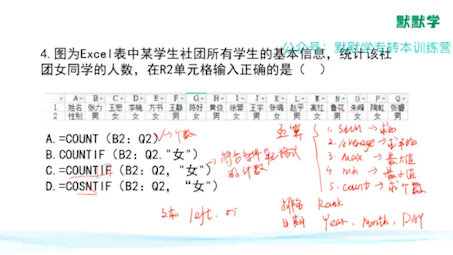 默默学
公众号：默默学专转本训练营
4.图为Excel表中某学生社团所有学生的基本信息，统计该社
团女同学的人数，在R2单元格输入正确的是（ ）
A B C D E F G H I J K L M N O P Q
1 姓名 张力 王思 李艳 方书 王静 陈好 黄俊 徐蕾 王宇 张靖 赵平 高红 鲁花 朱峰 陶虹 张睿
2 性别 男 女 女 男
A.=COUNT（B2：Q2） 个数
B.COUNTIF（B2：Q2."女"）
C.=COUNTIF（B2：Q2，"女"） 符合条件 格式的计数
D.=COSNTIF（B2：Q2，“女"）
1. Sum → 求和
2. average →
3. max → 最大值
4. min → 最小值
5. count → 求个数
left.
排序 Rank.
日期 Year. Month. DAY